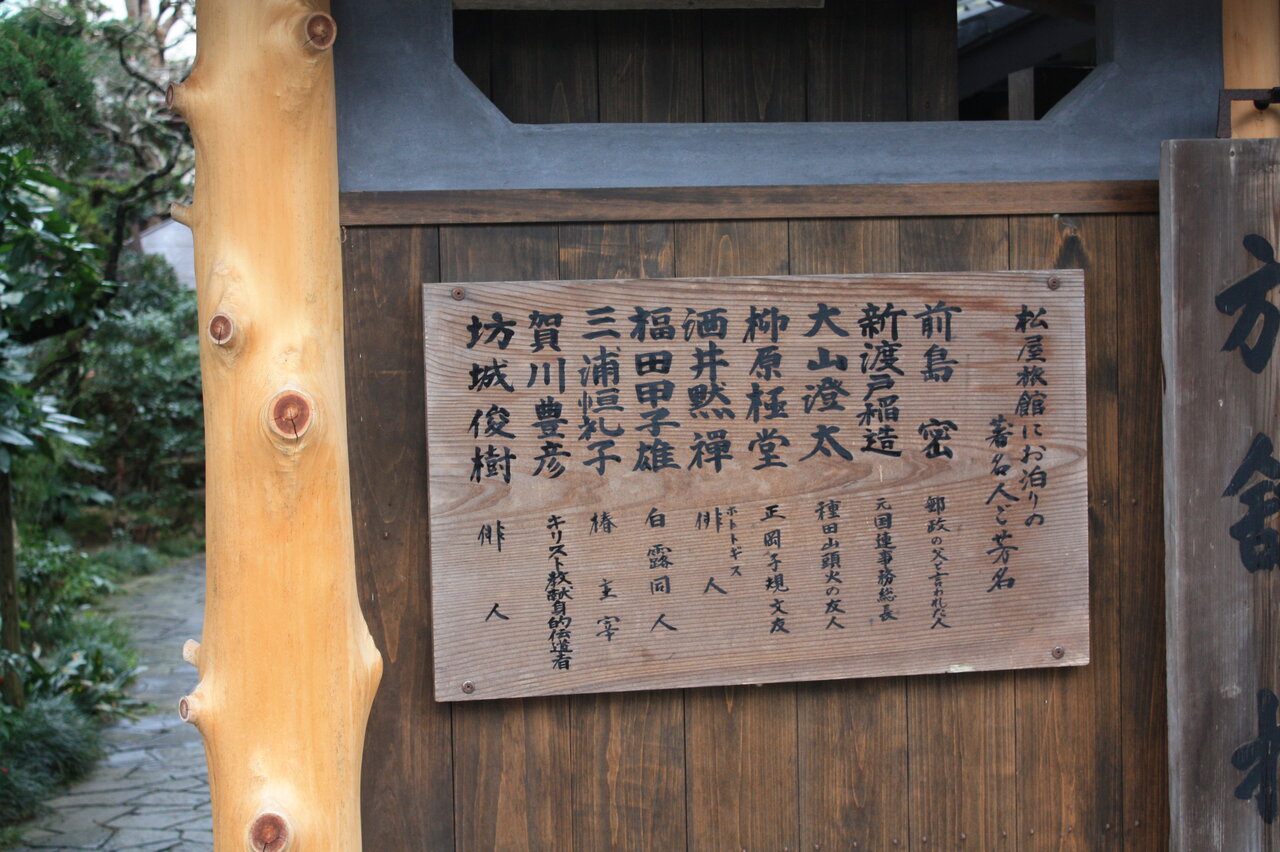 松屋旅館にお泊りの
著名人ご芳名
前島 密 郵政の父と言われた人
新渡戸稲造 元国連事務総長
大山澄太 種田山頭火の友人
柳原極堂 正岡子規文友
酒井黙禅 ホトトギス 俳人
福田甲子雄 白露同人
三浦恒礼子 椿 主宰
賀川豊彦 キリスト教献身的伝道者
坊城俊樹 俳人
旅館 松